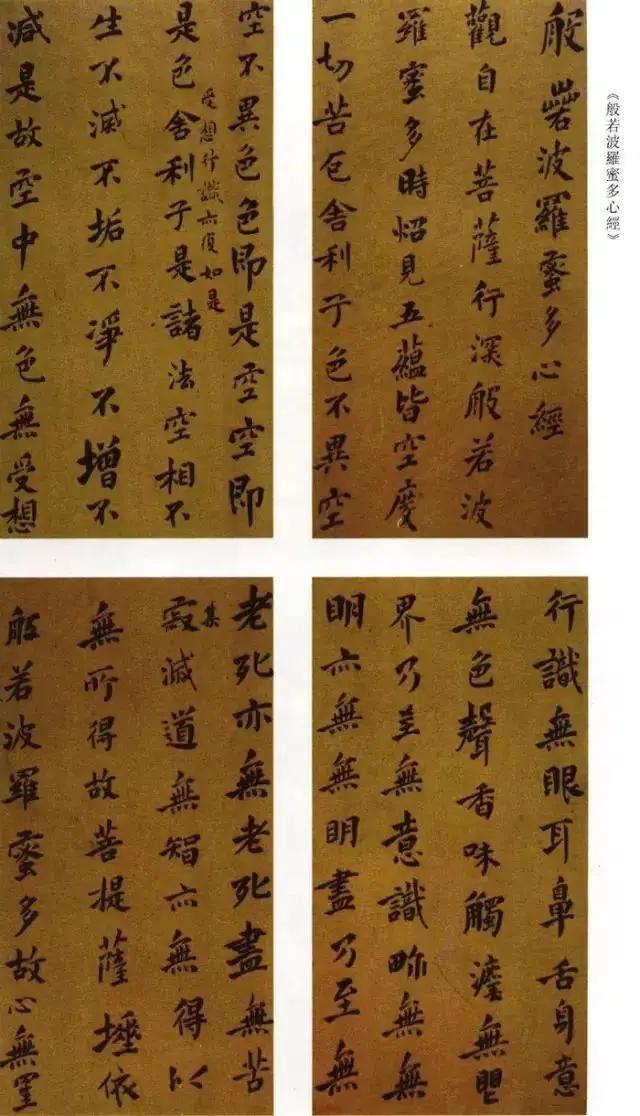 《般若波羅蜜多心經》
般若波羅蜜多心經
觀自在菩薩行深般若波
羅蜜多時炤見五蘊皆空度
一切苦厄舍利子色不異空
空不異色色即是空空即
受想行識亦復如是
是色舍利子是諸法空相不
生不滅不垢不淨不增不
減是故空中無色無受想
行識無眼耳鼻舌身意
無色聲香味觸灋無眼
界乃至無意識畍無無
明亦無無明盡乃至無
老死亦無老死盡無苦
集
寂滅道無智亦無得以
無所得故菩提薩埵依
般若波羅蜜多故心無罣